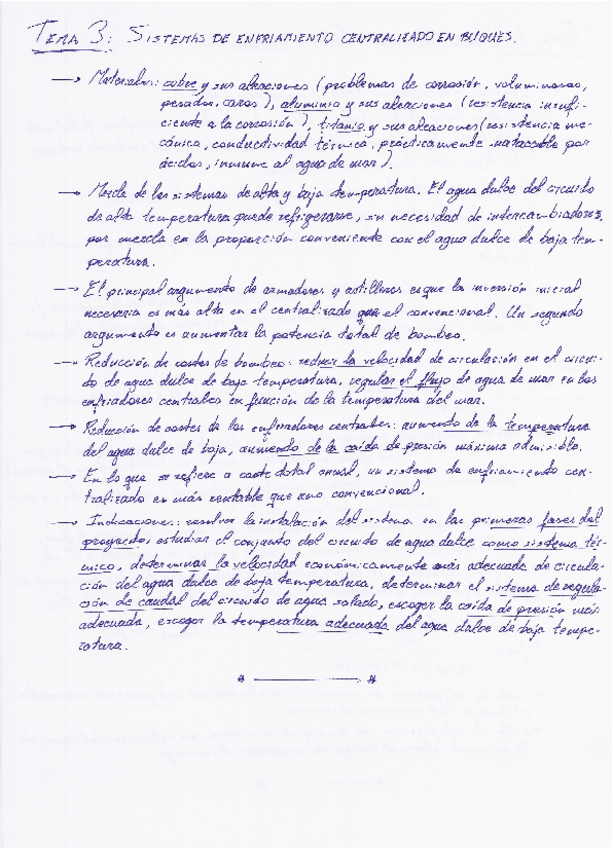 TEMA 3: SISTEMAS DE ENFRIAMIENTO CENTRALIZADO EN BUQUES.
→ Materiales: cobre y sus aleaciones (problemas de corrosión, voluminosos,
pesados, caros), aluminio y sus aleaciones (resistencia insufi-
ciente a la corrosión), titanio y sus aleaciones (resistencia me-
cánica, conductividad térmica, prácticamente inatacable por
ácidos, inmune al agua de mar).
→ Mezcla de los sistemas de alta y baja temperatura. El agua dulce del circuito
de alta temperatura puede refrigerarse, sin necesidad de intercambiadores,
por mezcla en la proporción conveniente con el agua dulce de baja tem-
peratura.
→ El principal argumento de armadores y astilleros es que la inversión inicial
necesaria es más alta en el centralizado que el convencional. Un segundo
argumento es aumentar la potencia total de bombeo.
→ Reducción de costes de bombeo: reducir la velocidad de circulación en el circui-
to de agua dulce de baja temperatura, regular el flujo de agua de mar en los
enfriadores centrales en función de la temperatura del mar.
→ Reducción de costes de los enfriadores centrales: aumento de la temperatura
del agua dulce de baja, aumento de la caída de presión máxima admisible.
→ En lo que se refiere a coste total anual, un sistema de enfriamiento cen-
tralizado es más rentable que uno convencional.
→ Indicaciones: resolver la instalación del sistema en las primeras fases del
proyecto, estudiar el conjunto del circuito de agua dulce como sistema tér-
mico, determinar la velocidad económicamente más adecuada de circula-
ción del agua dulce de baja temperatura, determinar el sistema de regula-
ción de caudal del circuito de agua salada, escoger la caída de presión más
adecuada, escoger la temperatura adecuada del agua dulce de baja tempe-
ratura.